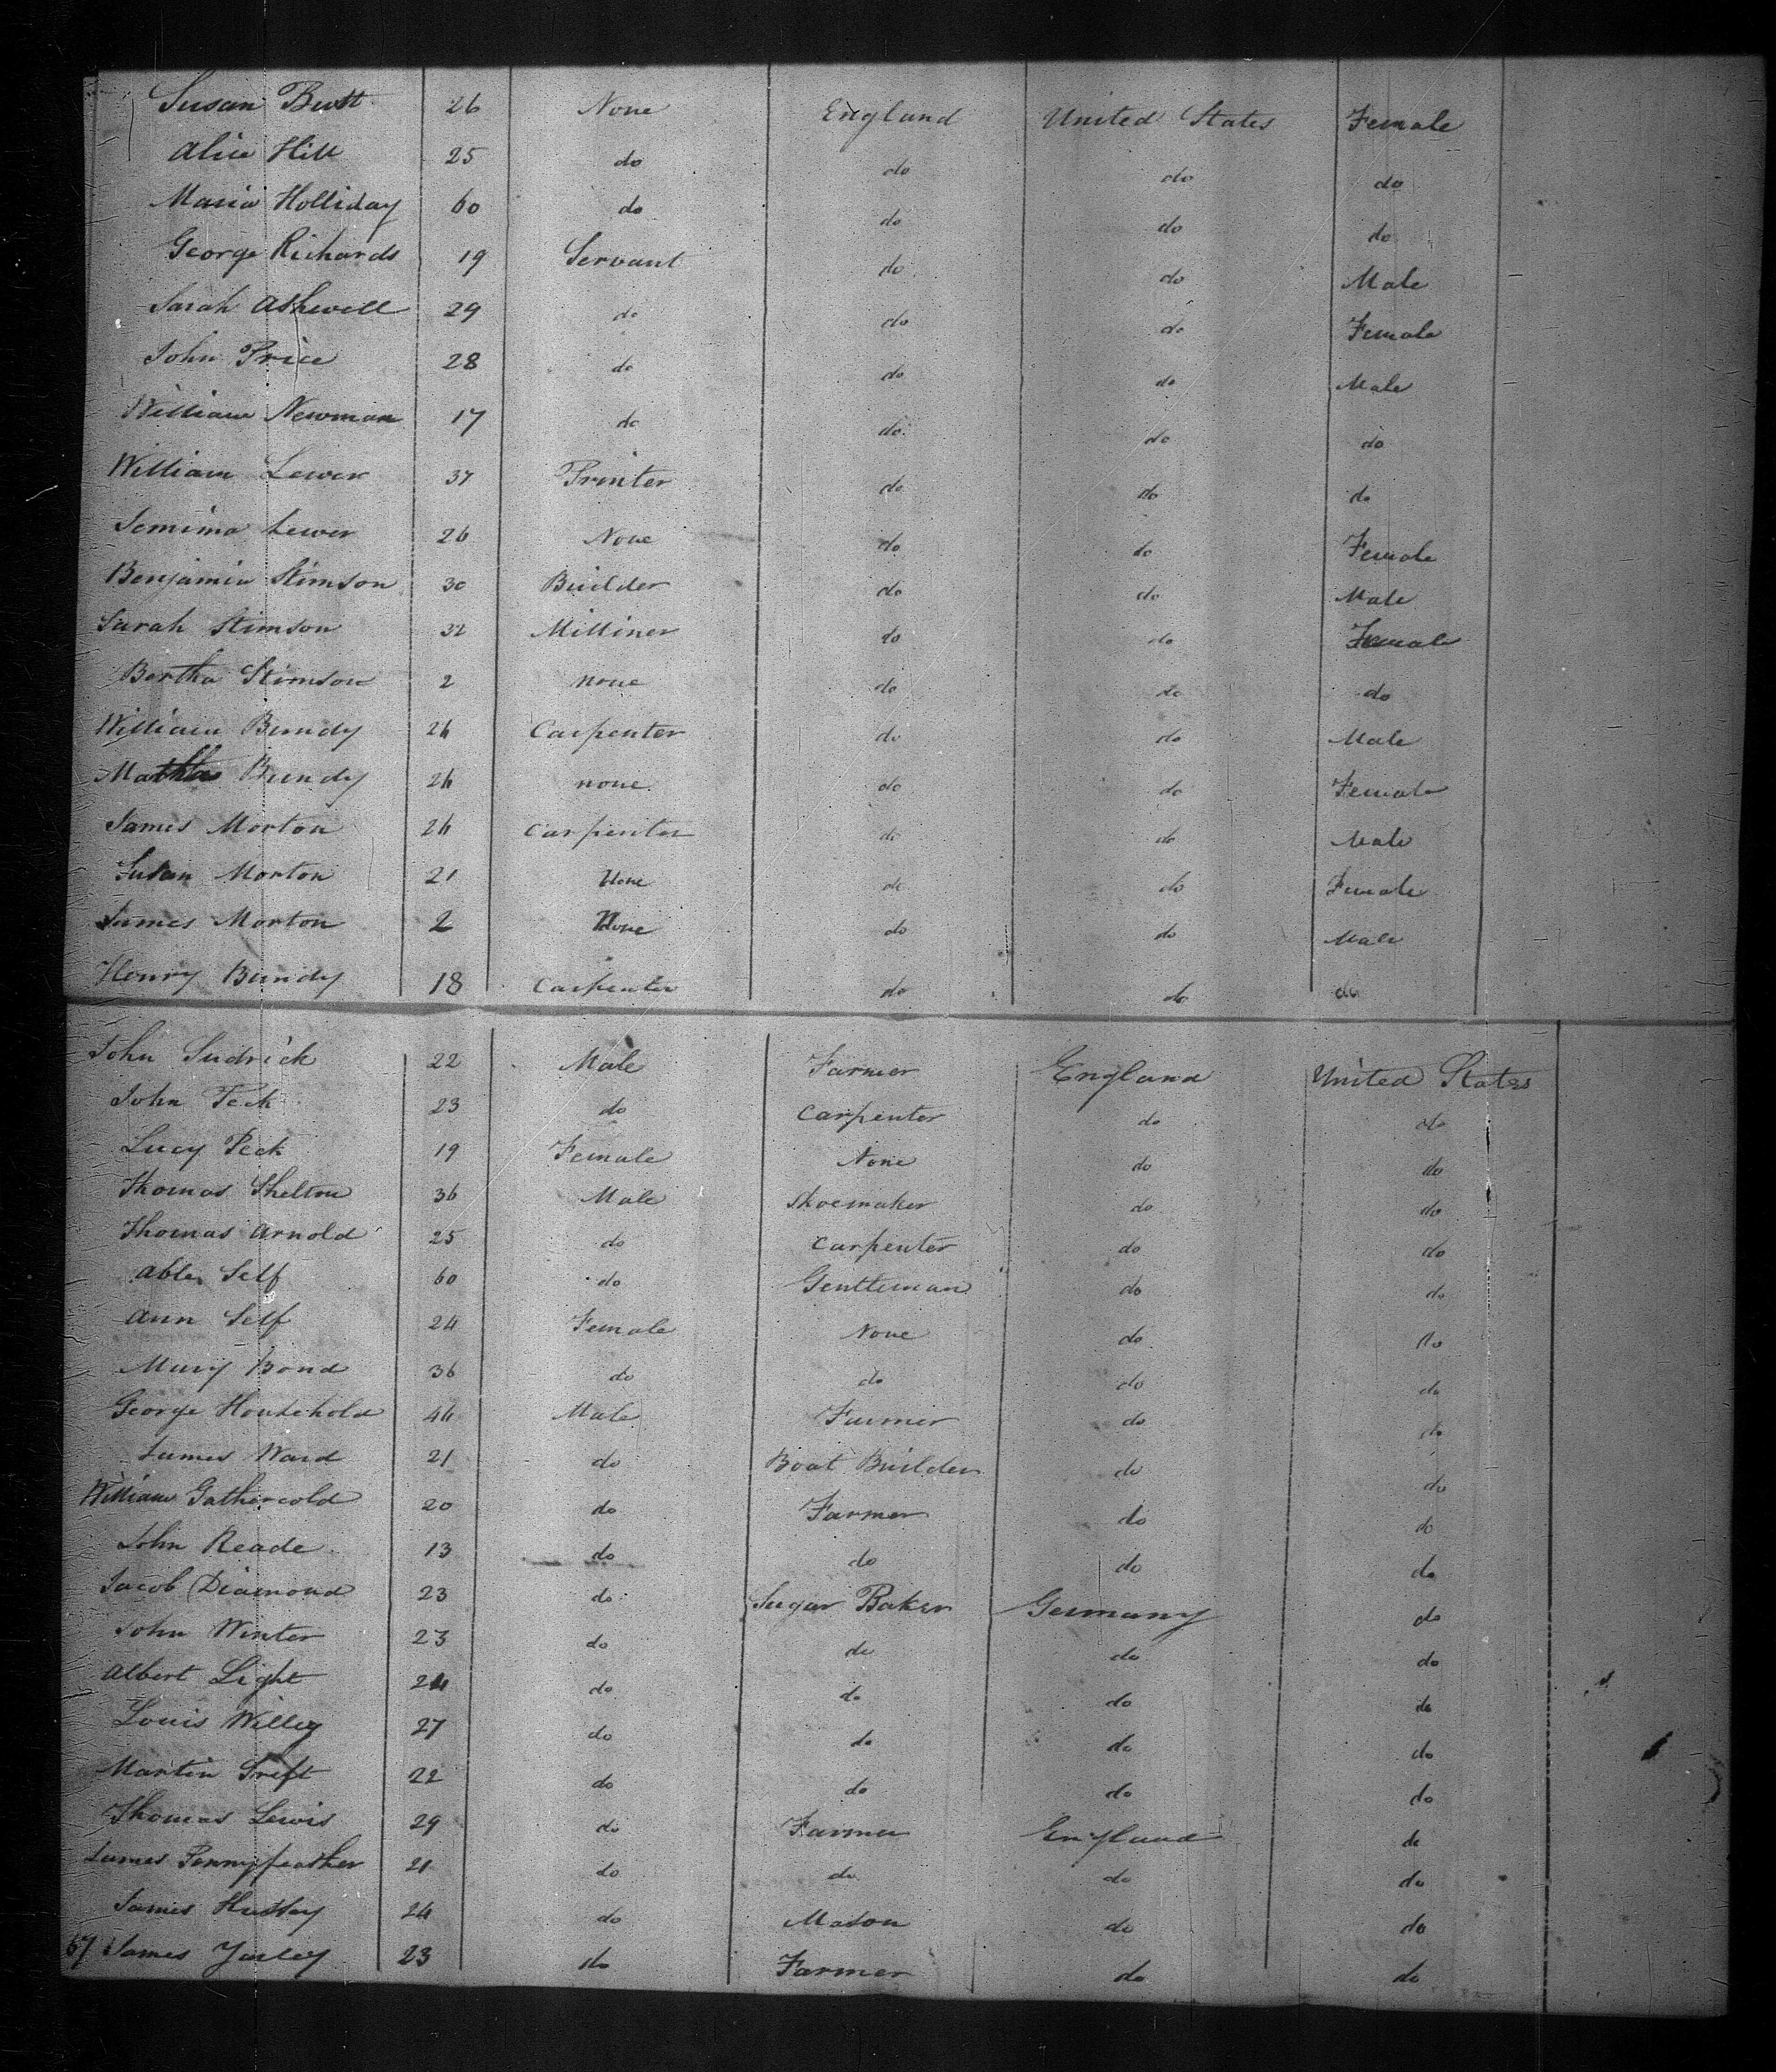 Susan Butt 26 None England United States Female
Alice Hill 25 do do do do
Maria Holliday 60 do do do do
George Richards 19 Servant do do Male
Sarah Ashwell 29 do do do Female
John Price 28 do do do Male
William Newman 17 do do do do
William Lewer 37 Printer do do do
Jemima Lewer 26 None do do Female
Benjamin Stimson 30 Builder do do Male
Sarah Stimson 32 Milliner do do Female
Bertha Stimson 2 none do do do
William Bundy 26 Carpenter do do Male
Bundy 26 none do do Female
James Morton 26 Carpenter do do Male
Susan Morton 21 None do do Female
James Morton 2 None do do Male
Henry Bundy 18 Carpenter do do do
John Sudrick 22 Male Farmer England United States
John Peck 23 do Carpenter do do
Lucy Peck 19 Female None do do
Thomas Shelton 36 Male Shoemaker do do
Thomas Arnold 25 do Carpenter do do
Able Self 60 do Gentleman do do
Ann Self 24 Female None do do
Mary Bond 36 do do do do
George Household 46 Male Farmer do do
James Ward 21 do Boat Builder do do
William Gathercold 20 do Farmer do do
John Reade 13 do do do do
Jacob Diamond 23 do Sugar Baker Germany do
John Winter 23 do do do do
Albert Light 24 do do do do
Louis Willey 27 do do do do
Martin 22 do do do do
Thomas Lewis 29 do Farmer England do
James Pennyfeather 21 do do do do
James Hussey 24 do Mason do do
67 James Yarley 23 do Farmer do do